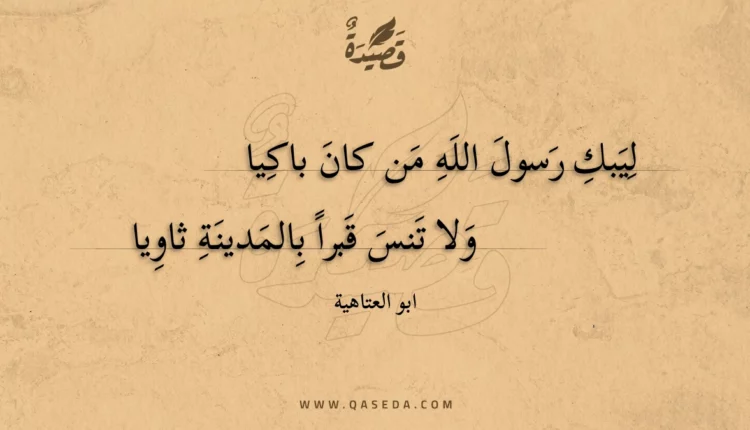 قَصِيدَةٌ
لِيَبكِ رَسولَ اللَهِ مَن كانَ باكِيا
وَلا تَنسَ قَبراً بِالمَدينَةِ ثاوِيا
ابو العتاهية
WWW.QASEDA.COM